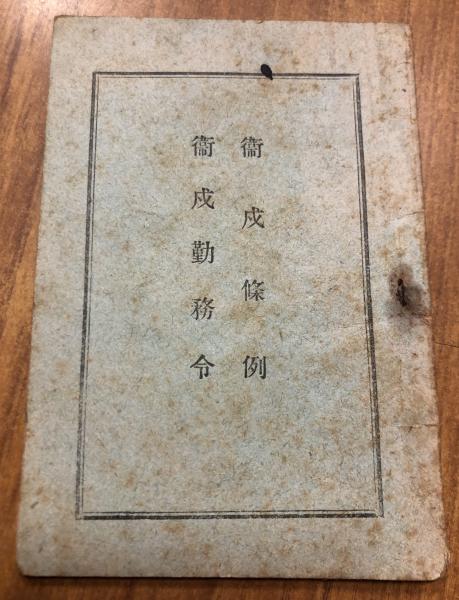 衞戍條例
衞戍勤務令